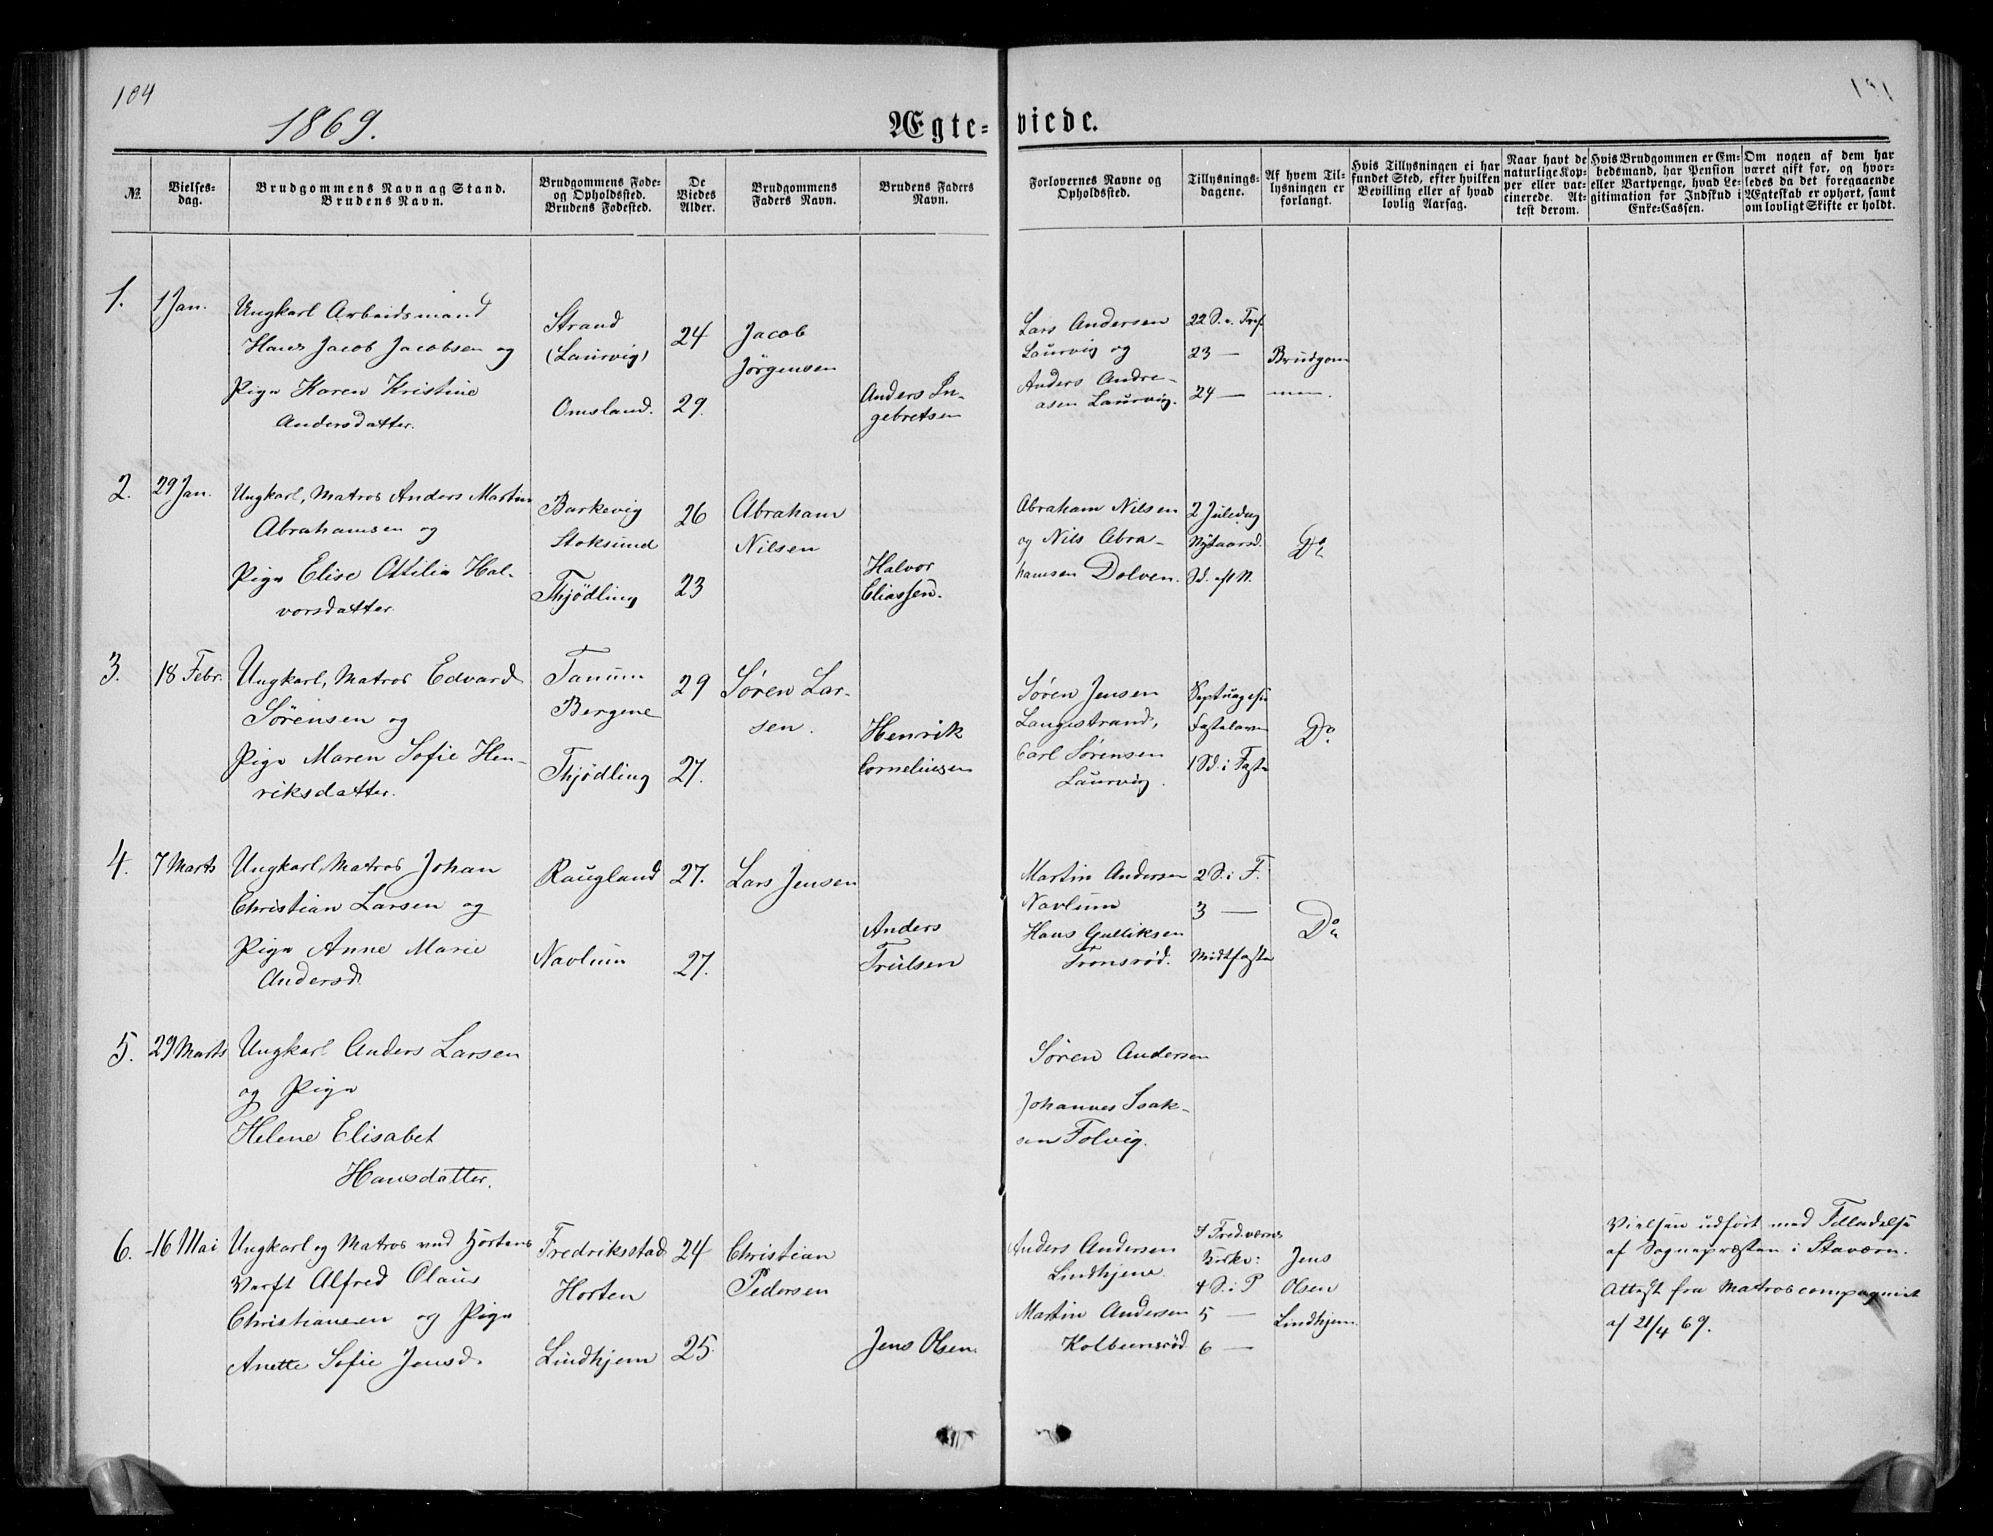 104
1869.
Ægte=viede.
№.
Vielses-
dag.
Brudgommens Navn og Stand.
Brudens Navn.
Brudgommens Føde-
og Opholdssted.
Brudens Fødested.
De
Viedes
Alder.
Brudgommens
Faders Navn.
Brudens Faders
Navn.
Forlovernes Navne og
Opholdssted.
Tillysnings-
dagene.
Af hvem Til-
lysningen er
forlangt.
Hvis Tillysningen ei har
fundet Sted, efter hvilken
Bevilling eller af hvad
lovlig Aarsag.
Naar havt de
naturlige Kop-
per eller vac-
cinerede. At-
test derom.
Hvis Brudgommen er Em-
bedsmand, har Pension
eller Vartpenge, hvad Le-
gitimation for Indskud i
Enke-Cassen.
Om nogen af dem har
været gift før, og hvor-
ledes da det foregaaende
Ægteskab er ophørt, samt
om lovligt Skifte er holdt.
1.
1 Jan.
Ungkarl Arbeidsmand
Hans Jacob Jacobsen og
Pige Karen Kristine
Andersdatter.
Strand
(Laurvig)
Omsland.
24
29.
Jacob
Jörgensen
Anders In-
gebretsen
Lars Andersen
Laurvig og
Anders Andre-
asen Laurvig.
22 S. e. Tref.
23 —
24 —
Brudgom
men.
2.
29 Jan.
Ungkarl, Matros Anders Martin
Abrahamsen og
Pige Elise Ottilia Hal-
vorsdatter.
Barkevig
Stoksund
Thjödling
26
23
Abraham
Nilsen
Halvor
Eliassen.
Abraham Nilsen
og Nils Abra-
hamsen Dolven.
2 Juledag
Nytaarsd.
Sd. eft N.
Do
3.
18 Febr.
Ungkarl, Matros Edvard
Sörensen og
Pige Maren Sofie Hen-
riksdatter.
Tanum
Bergene
Thjödling
29
27.
Søren Lar-
sen.
Henrik
Corneliusen
Søren Jensen
Langestrand,
Carl Sørensen
Laurvig.
Septuages
Fastelaven
1 Sd. i Faste
Do
4.
7 Marts
Ungkarl, Matros Johan
Christian Larsen og
Pige Anne Marie
Andersd.
Raugland
Navlum
27.
27.
Lars Jensen
Anders
Trulsen
Martin Andersen
Navlum
Hans Gulliksen
Tronsrød.
2 S. i F.
3 —
Midtfaste
Do
5.
29 Marts
Ungkarl Anders Larsen
og Pige
Helene Elisabet
Hansdatter.
Søren Andersen
Johannes Isak-
sen Folvig.
6.
16 Mai
Ungkarl og Matros ved Hortens
Verft Alfred Olaus
Christiansen og Pige
Anette Sofie Jensd.
Fredriksstad
Horten
Lindhjem
24
25
Christian
Pedersen
Jens Olsen
Anders Andersen
Lindhjem.
Martin Andersen
Kolbeensrød
I Fredværns
Kirke:
4 S. i P
5 —
6 —
Jens
Olsen
Lindhjem.
Vielsen udført med Tilladelse
af Sognepræsten i Stavern.
Attest fra Matroscompagniet
af 21/4 69.